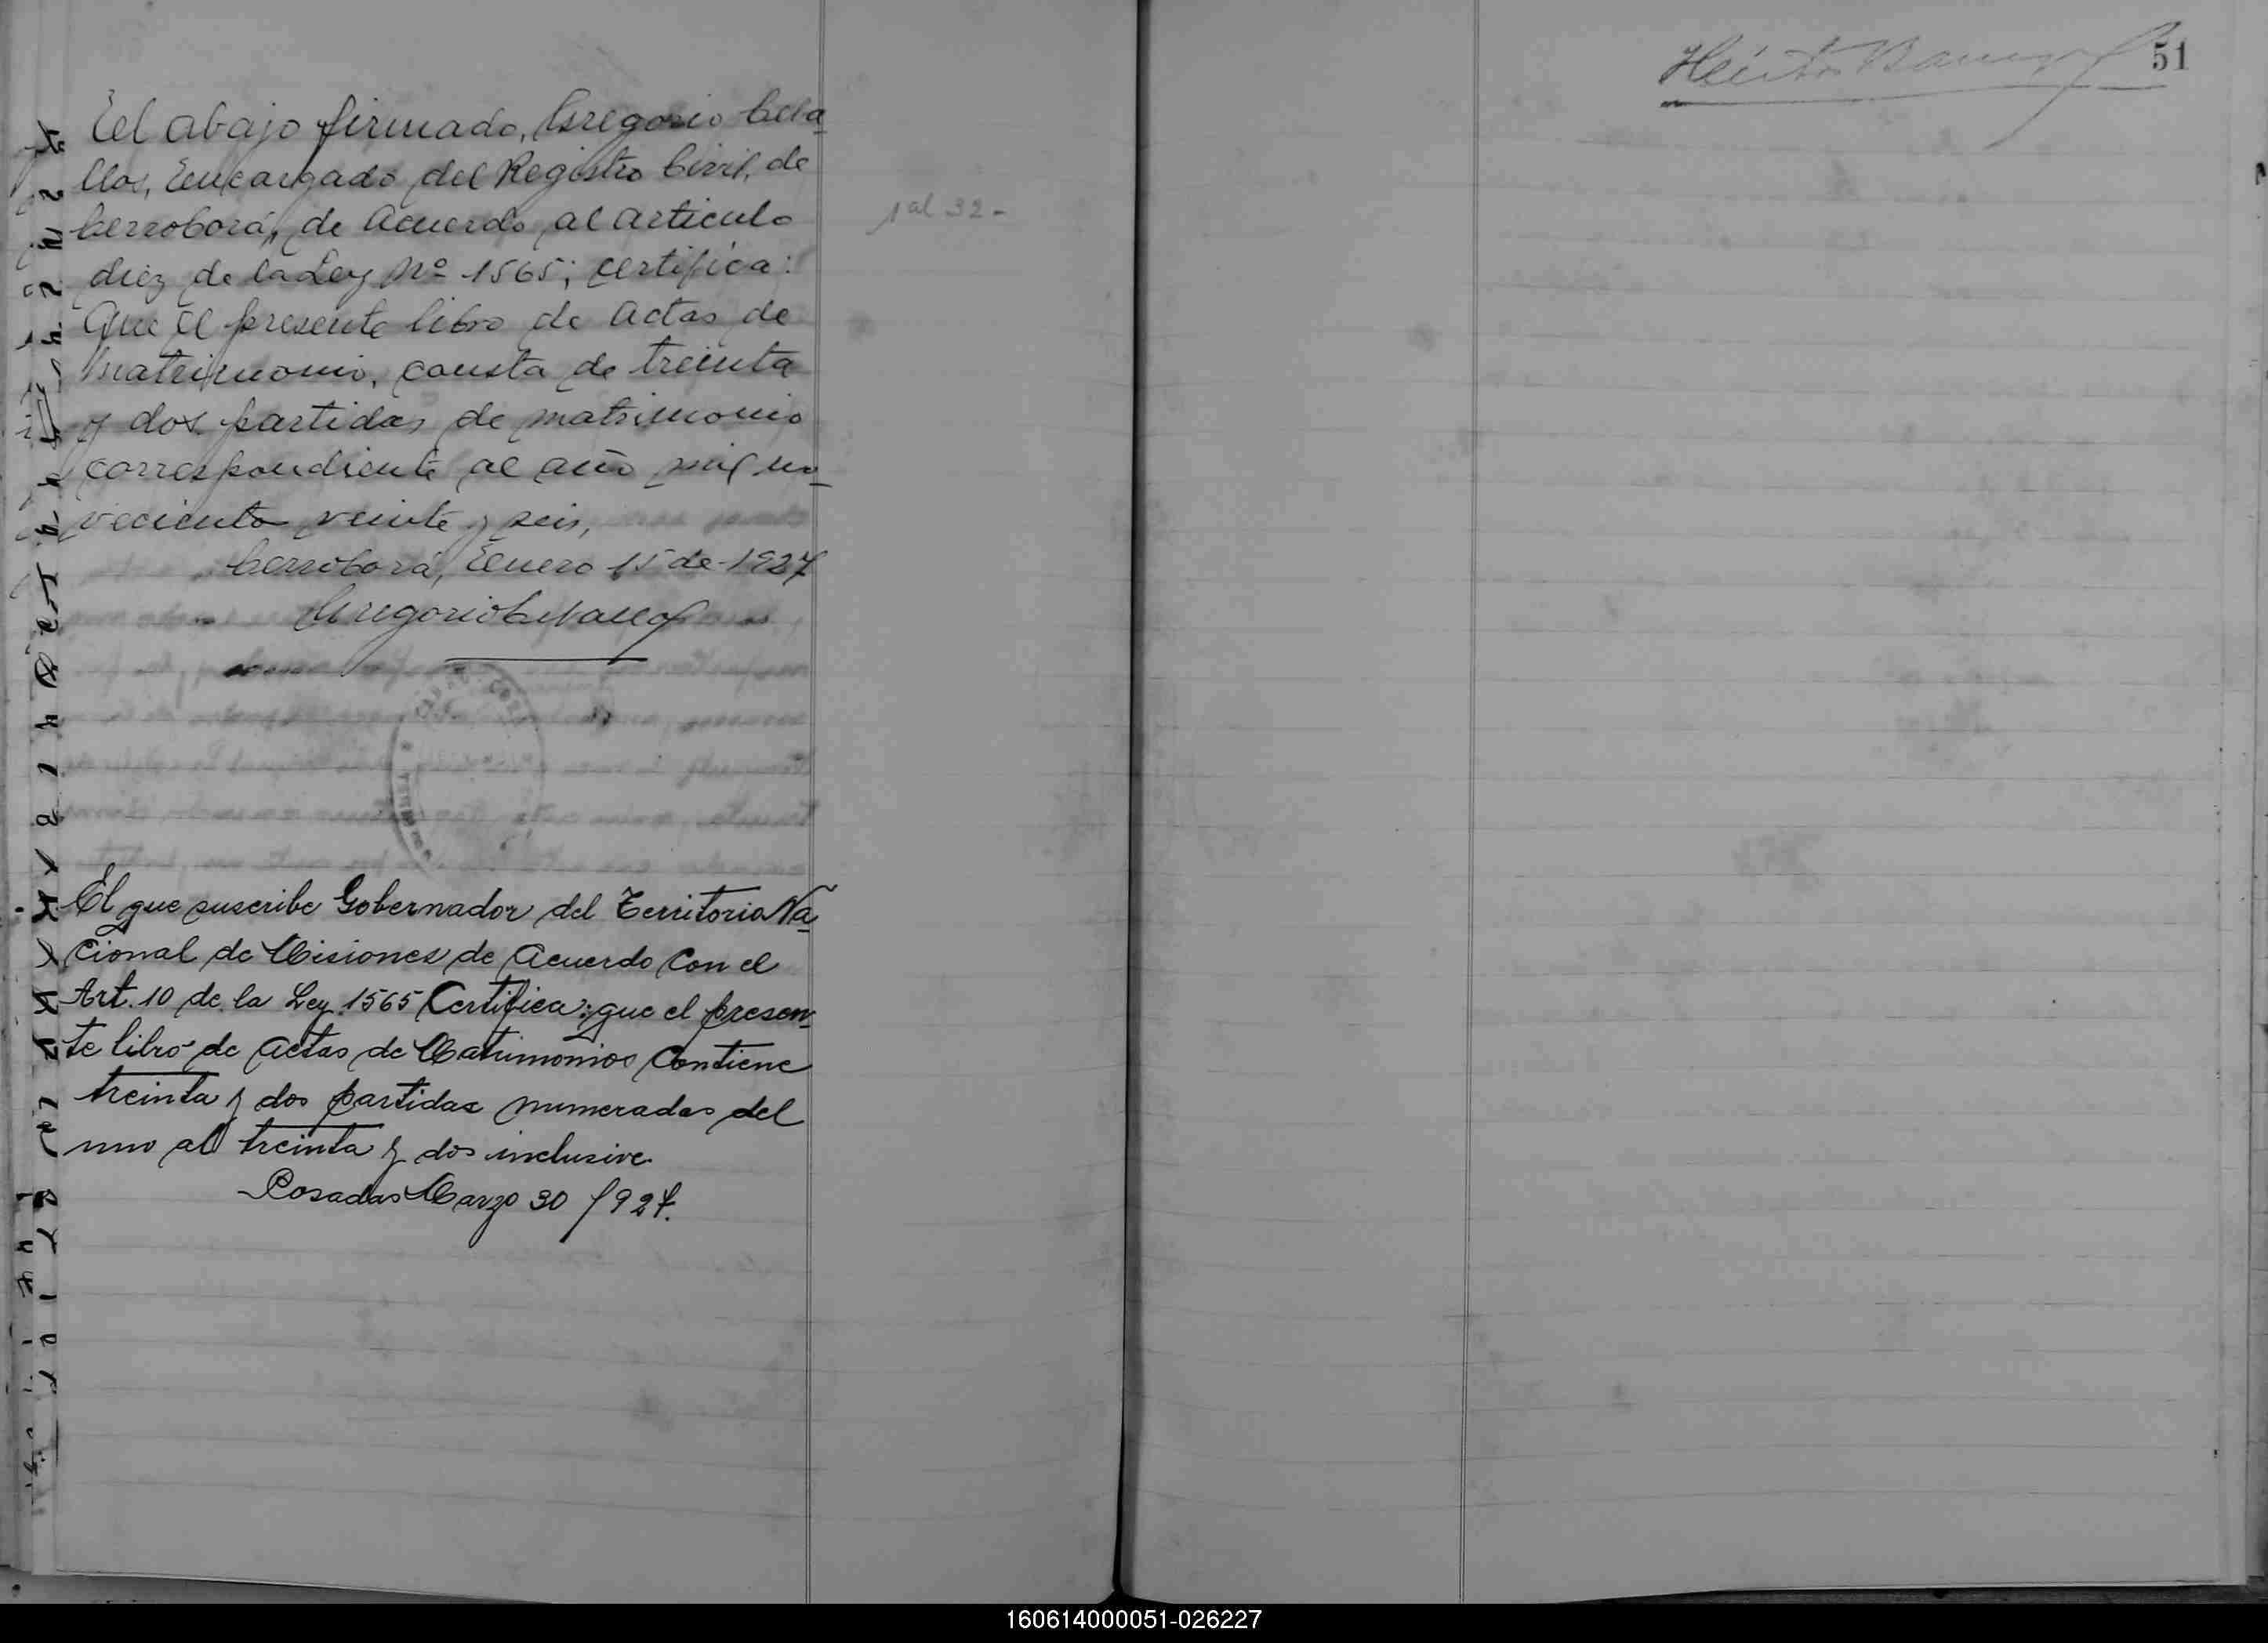 El abajo firmado, Gregorio Ceva_
llos, Encargado del Registro Civil, de
Cerrobora, de Acuerdo al articulo
diez de la Ley Nº 1565; certifica:
Que el presente libro de Actas de
Matrimonio, consta de treinta
y dos partidas de matrimonio
correspondiente al año mil no_
veciento veinte y seis,
Cerrobora, Enero 15 de 1927
Gregorio Cevallos
El que suscribe Gobernador del Territorio Na_
cional de Misiones de Acuerdo con el
Art. 10 de la Ley 1565 Certifica: que el presen_
te libro de Actas de Matrimonios contiene
treinta y dos partidas numeradas del
uno al treinta y dos inclusive.
Posadas Marzo 30 1927.
1 al 32-
Héctor
51
160614000051-026227